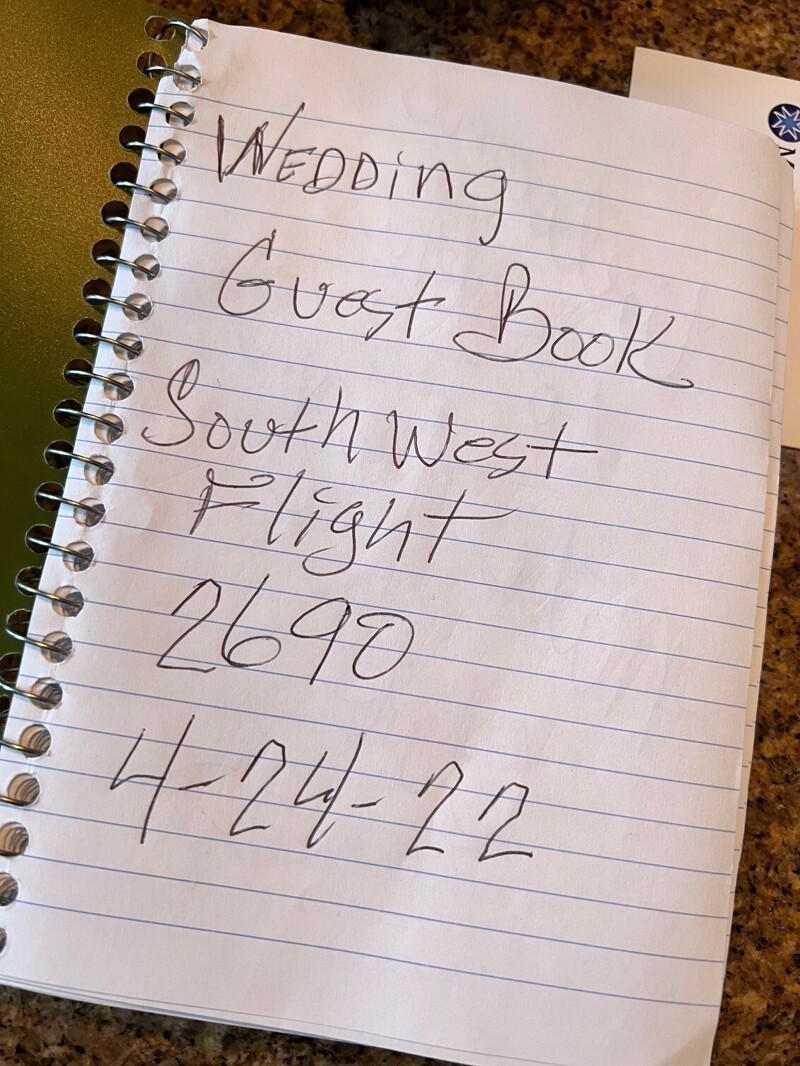 WEDDing
Guest Book
SouthWest
Flight
2690
4-24-22